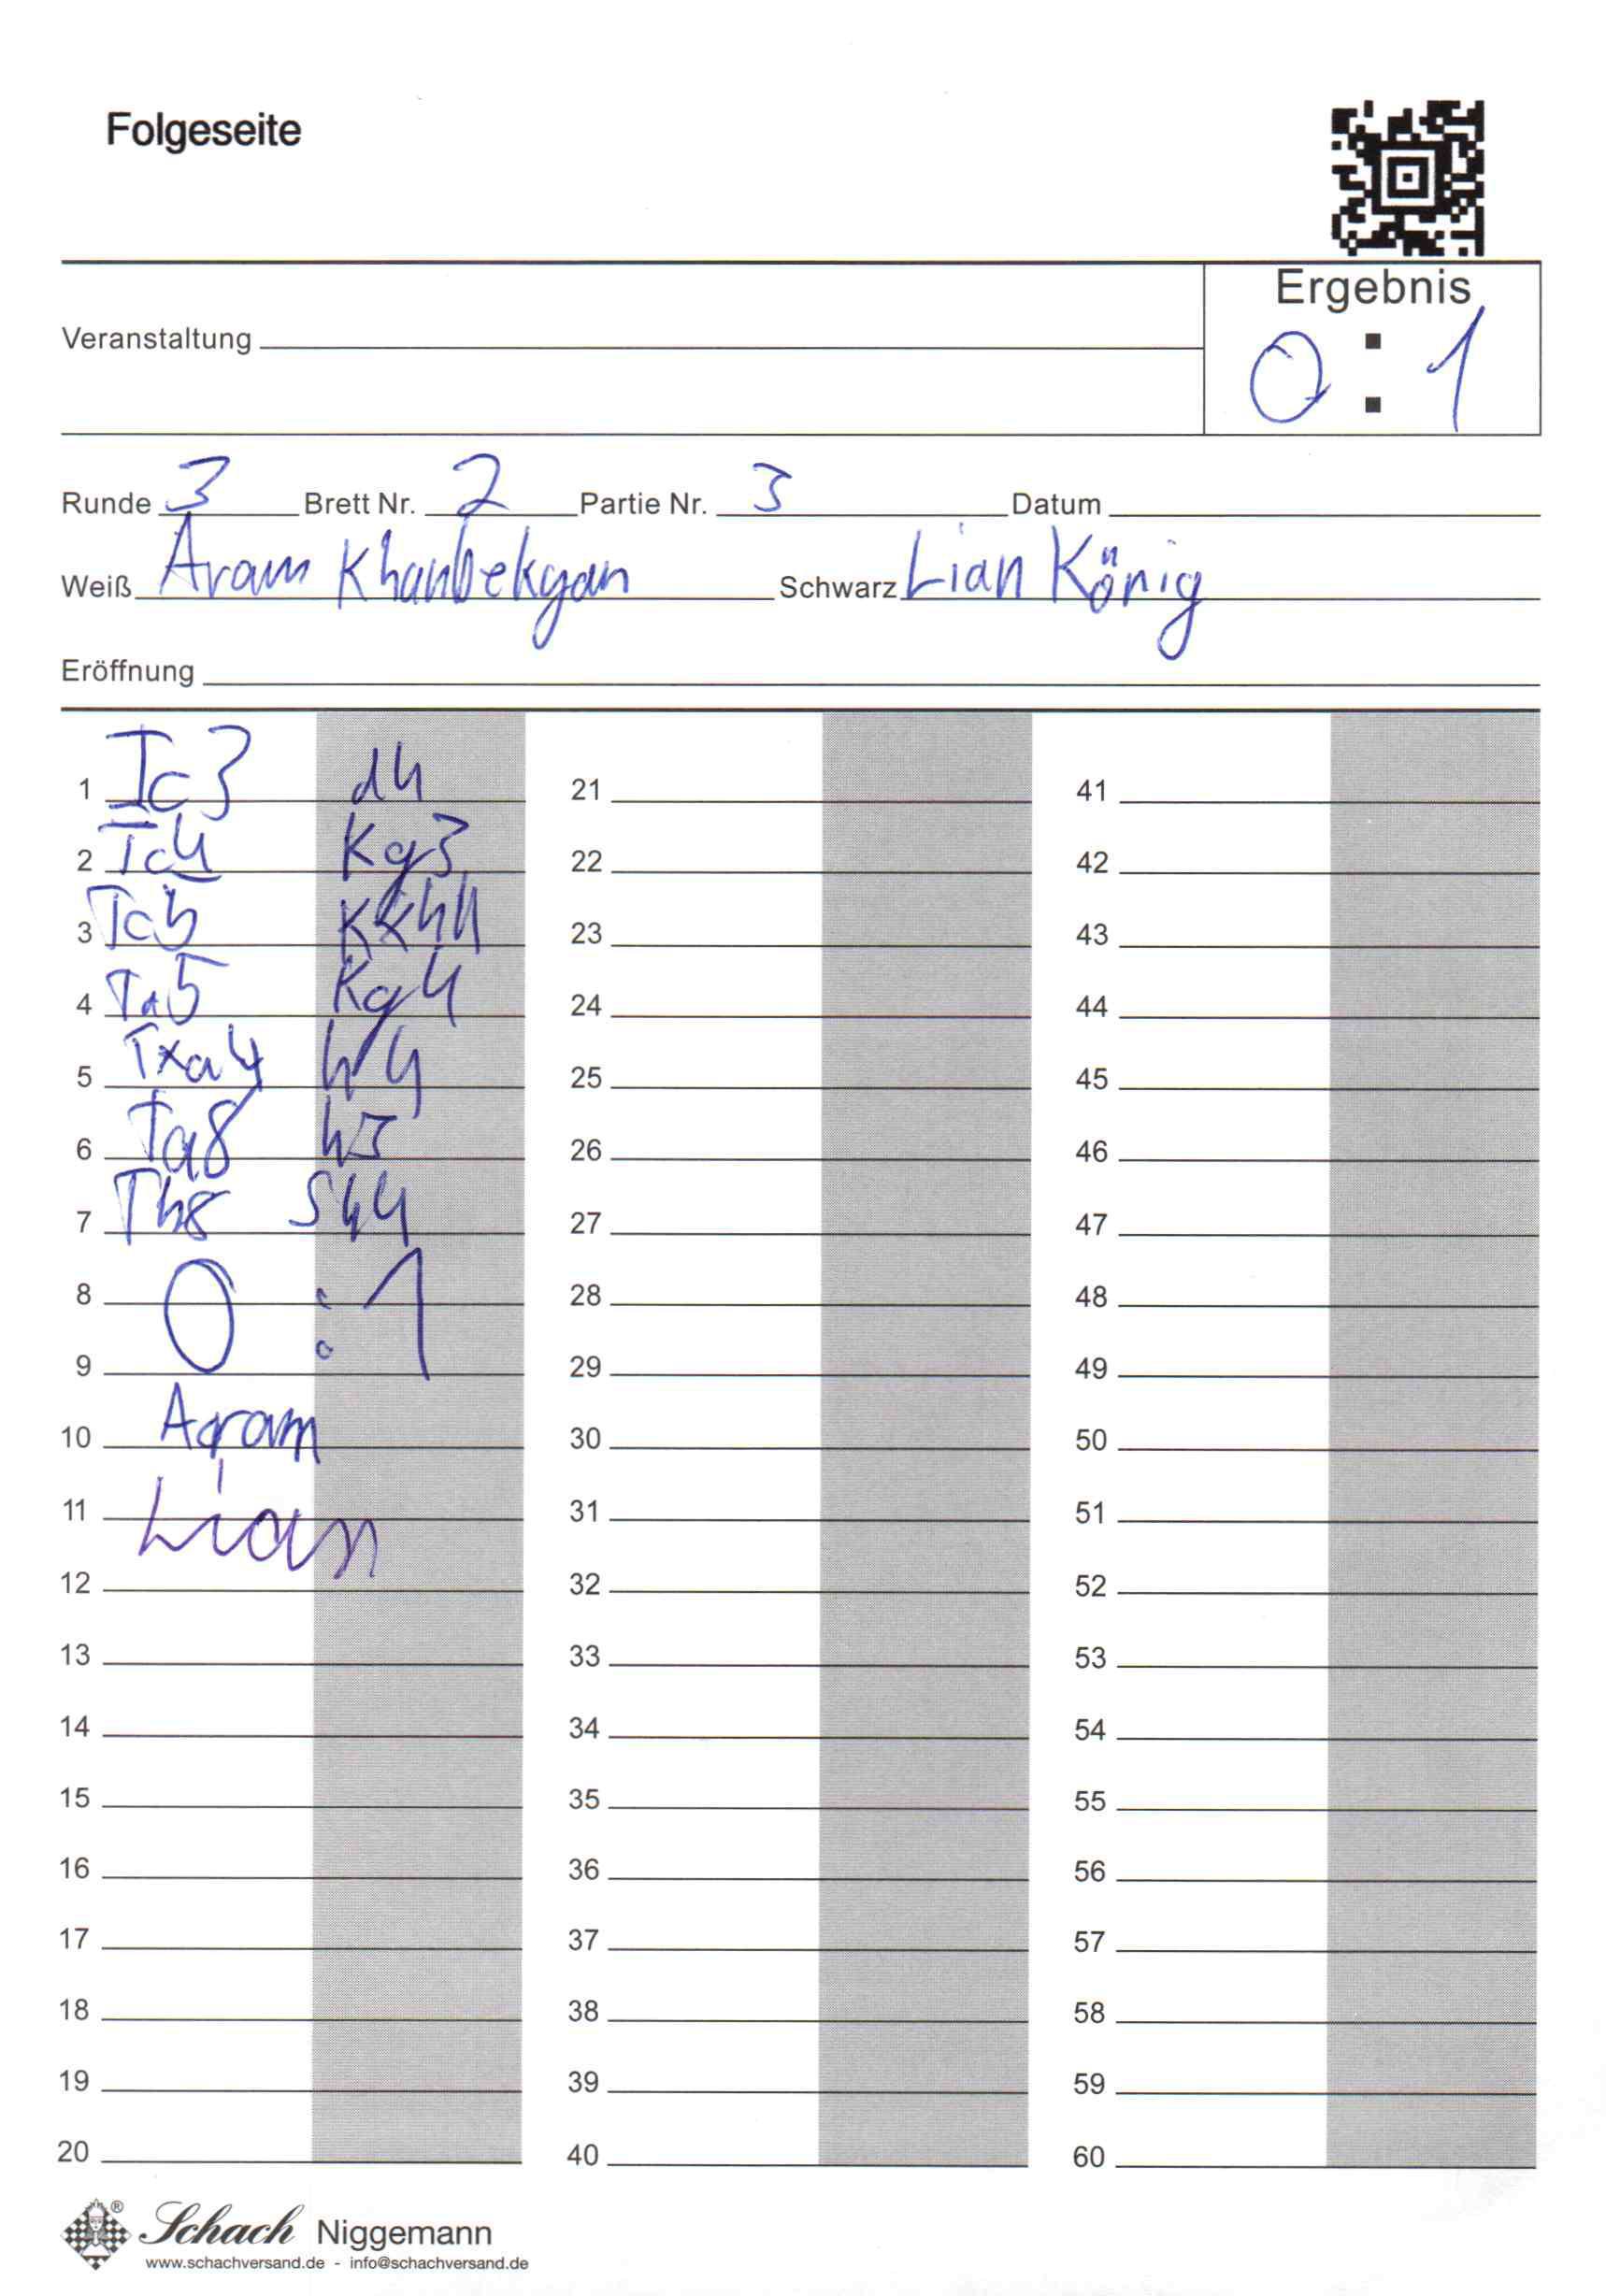 Folgeseite
Ergebnis
Veranstaltung
0 : 1
Runde 3 Brett Nr. 2 Partie Nr. 3 Datum
Weiß Aram Khanbekyan Schwarz Lian König
Eröffnung
1 Tc3 d4
2 Tc4 Kg3
3 Tc5 Kxh4
4 Ta5 Kg4
5 Txa4 h4
6 Ta8 h3
7 Th8 Sh4
8 0 : 1
9
10 Aram
11 Lian
12
13
14
15
16
17
18
19
20
21
22
23
24
25
26
27
28
29
30
31
32
33
34
35
36
37
38
39
40
41
42
43
44
45
46
47
48
49
50
51
52
53
54
55
56
57
58
59
60
® Schach Niggemann
www.schachversand.de - info@schachversand.de